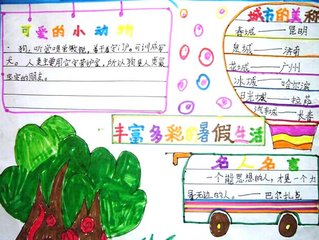 可爱的小动物
狗，听觉嗅觉敏锐，善于守护，可训成
犬。人类主要用它守护家，所以狗是人类最
忠实的朋友。
城市的美称
春城——昆明
泉城——济南
花城——广州
冰城——哈尔滨
日光城——拉萨
——长春
丰富多彩的暑假生活
名人名言
一个能思想的人，才是一个力
量无边的人。——巴尔扎克